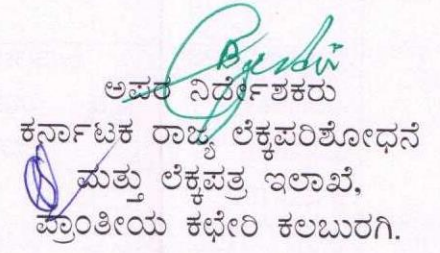 ಅಪರ ನಿರ್ದೇಶಕರು
ಕರ್ನಾಟಕ ರಾಜ್ಯ ಲೆಕ್ಕಪರಿಶೋಧನೆ
ಮತ್ತು ಲೆಕ್ಕಪತ್ರ ಇಲಾಖೆ,
ಪ್ರಾಂತೀಯ ಕಛೇರಿ ಕಲಬುರಗಿ.